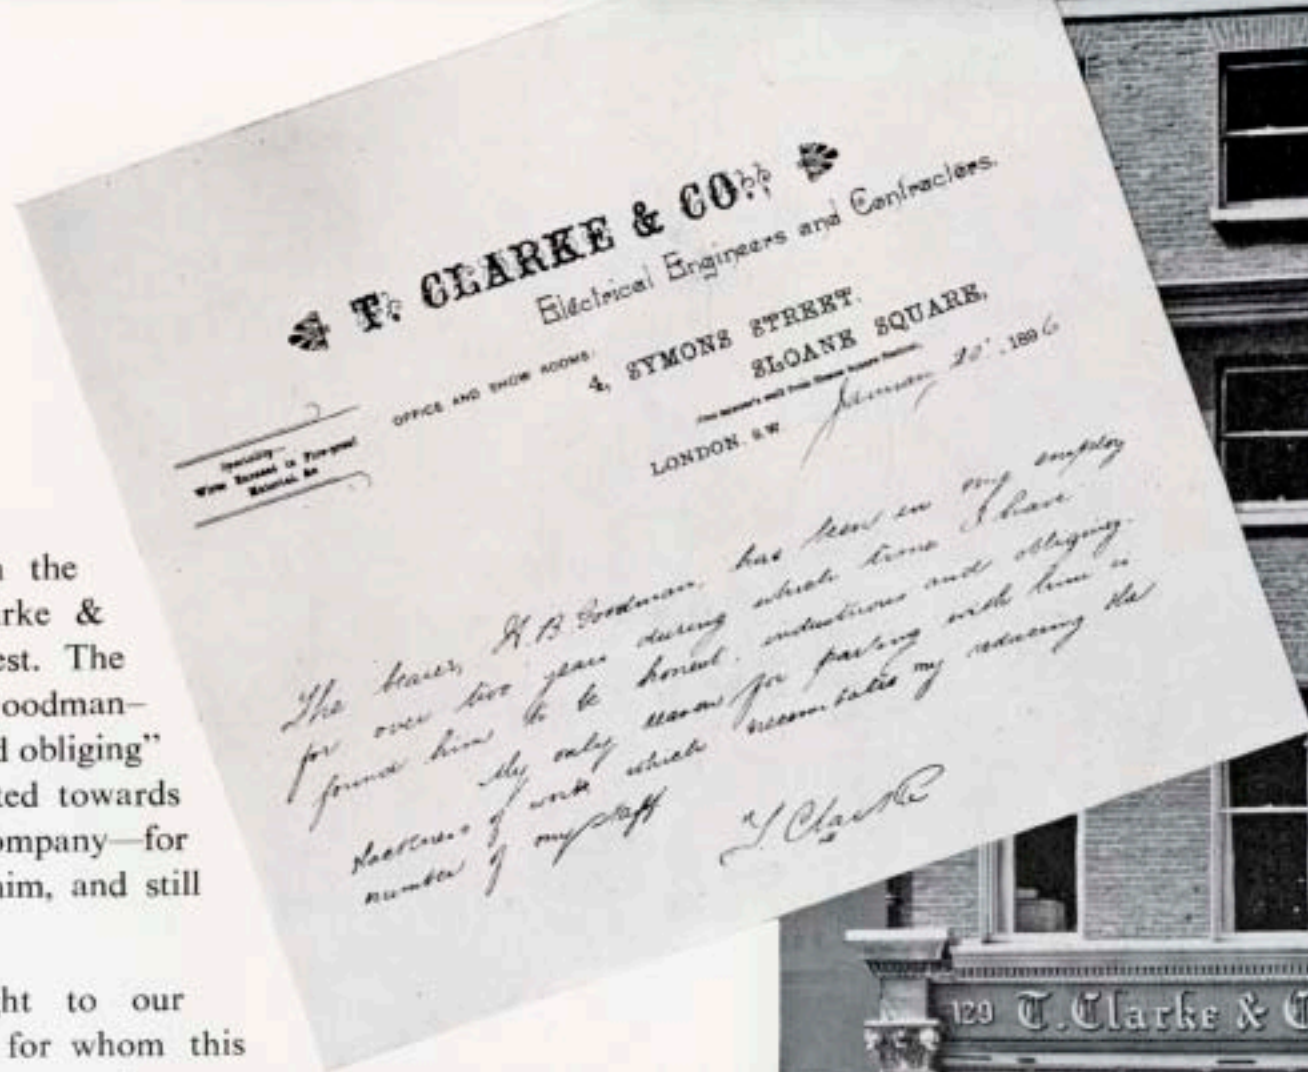 T. CLARKE & CO.
Electrical Engineers and Contractors.
OFFICE AND SHOW ROOMS:
4, SYMONS STREET.
SLOANE SQUARE,
LONDON. S.W January 20, 1896
Speciality—
Wires Encased in Fire-proof
Material, &c
The bearer, H. B. Goodman, has been in my employ
for over two years during which time I have
found him to be honest, industrious and obliging.
My only reason for parting with him is
slackness of work which necessitates my reducing the
number of my staff
T Clarke
the
rke &
est. The
oodman–
d obliging”
ted towards
ompany—for
him, and still
ht to our
for whom this
129 T. Clarke & C